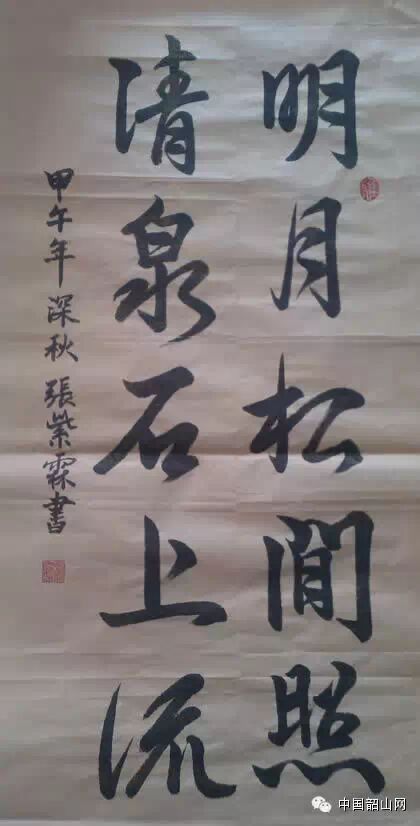 明月松間照
清泉石上流
甲午年深秋張紫霖書
中国韶山网